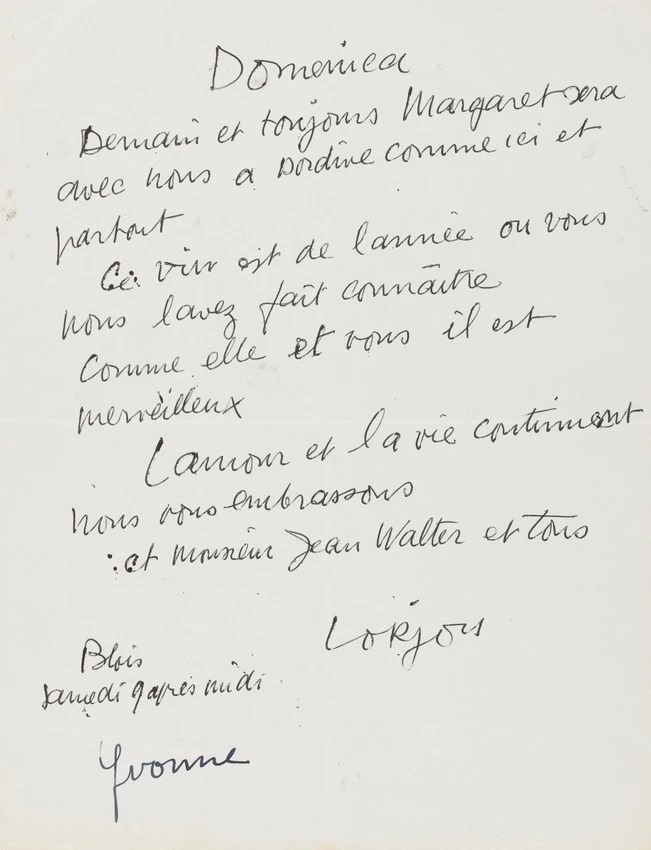 Domenica
Demain et toujours Margaret sera
avec nous a Dordive comme ici et
partout
Ce vin est de lannée ou vous
nous lavez fait connaître
Comme elle et vous il est
merveilleux
Lamour et la vie continuent
nous vous embrassons
et Monsieur Jean Walter et tous
LORJOU
Blois
samedi après midi
Yvonne